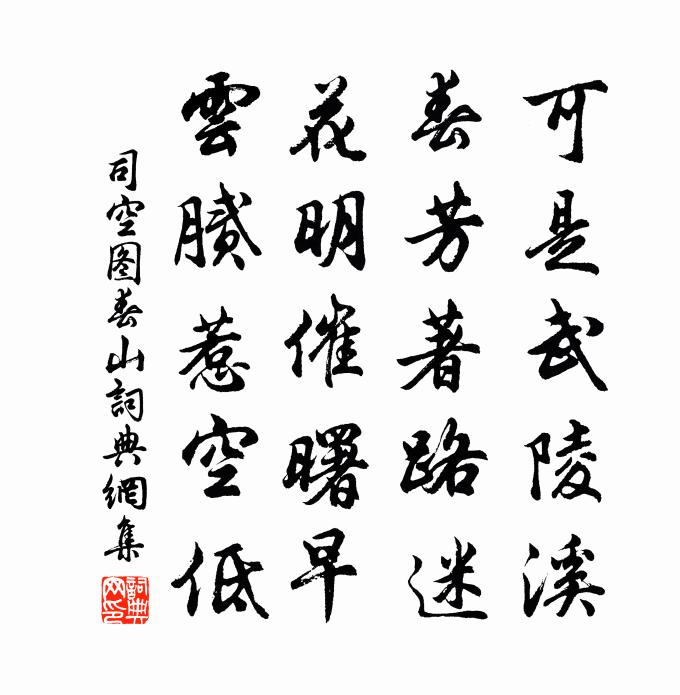 可是武陵溪
春芳著路迷
花明催曙早
雲腻惹空低
司空图春山詞典網集
詞典
网印